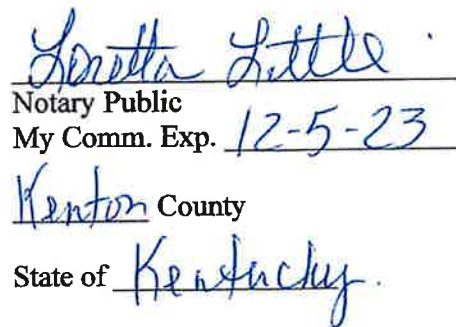 Loretta Little
Notary Public
My Comm. Exp. 12-5-23
Kenton County
State of Kentucky.